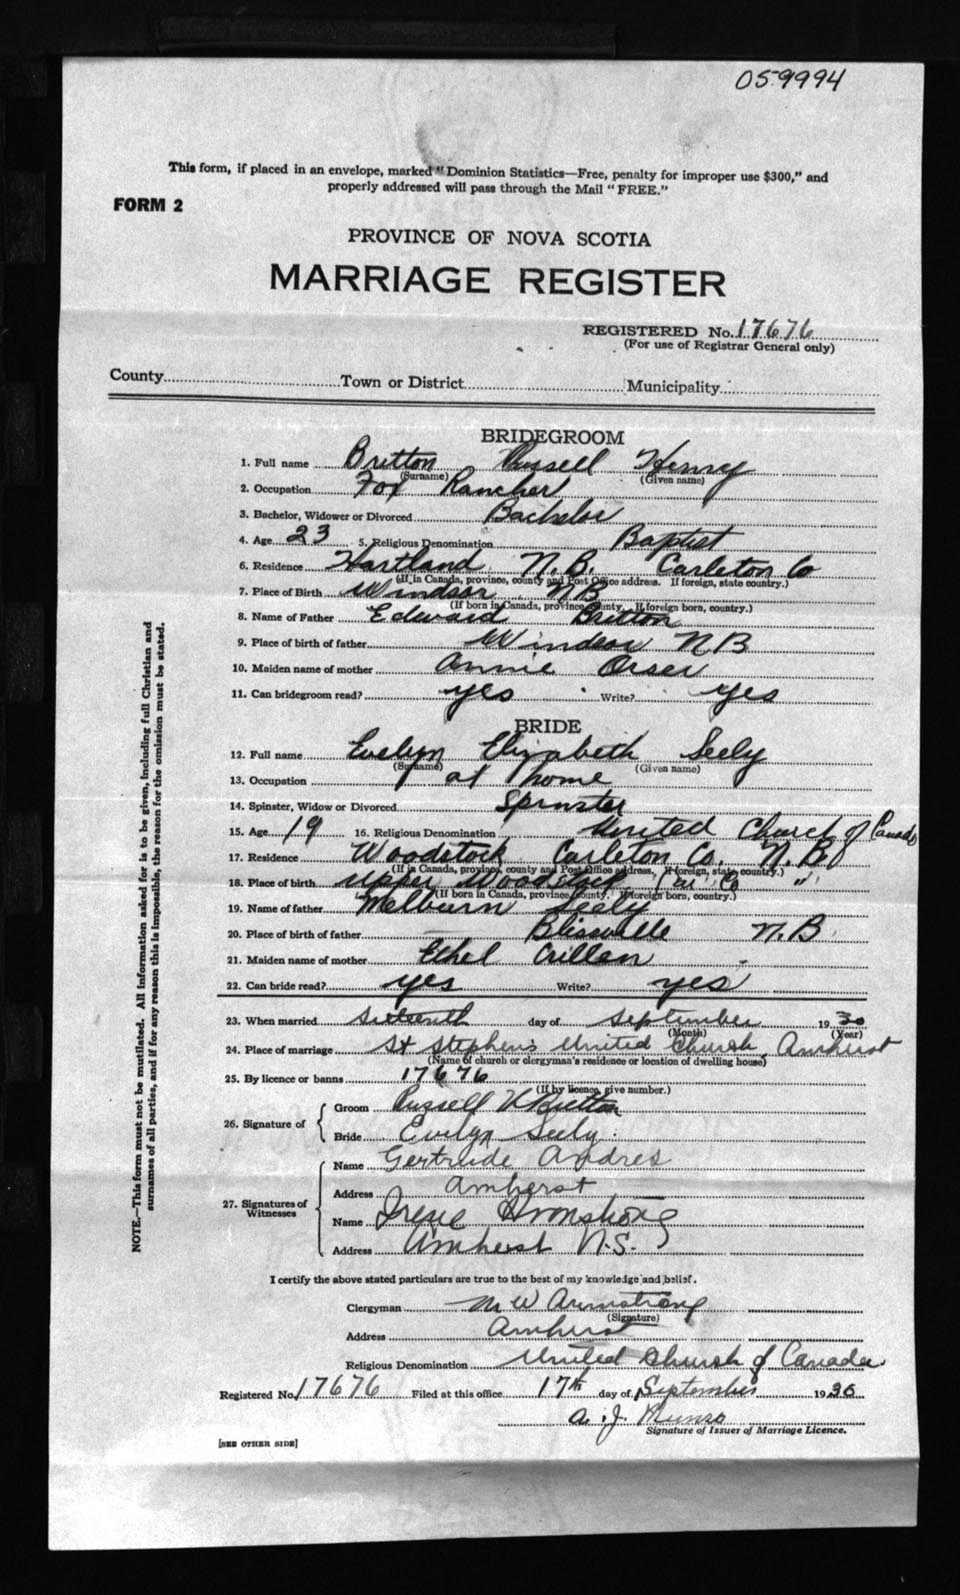 059994
This form, if placed in an envelope, marked "Dominion Statistics—Free, penalty for improper use $300," and
properly addressed will pass through the Mail "FREE."
FORM 2
PROVINCE OF NOVA SCOTIA
MARRIAGE REGISTER
REGISTERED No. 17676
(For use of Registrar General only)
County Town or District Municipality
BRIDEGROOM
1. Full name Britton Russell Henry
(Surname) (Given name)
2. Occupation Fox Rancher
3. Bachelor, Widower or Divorced Bachelor
4. Age 23 5. Religious Denomination Baptist
6. Residence Hartland N.B. Carleton Co
(If in Canada, province, county and Post Office address. If foreign, state country.)
7. Place of Birth Windsor NB
(If born in Canada, province, county. If foreign born, country.)
8. Name of Father Edward Britton
9. Place of birth of father Windsor NB
10. Maiden name of mother Annie Orser
11. Can bridegroom read? yes Write? yes
BRIDE
12. Full name Evelyn Elizabeth Seely
(Surname) (Given name)
13. Occupation at home
14. Spinster, Widow or Divorced Spinster
15. Age 19 16. Religious Denomination United Church of Canada
17. Residence Woodstock Carleton Co. N.B.
(If in Canada, province, county and Post Office address. If foreign, state country.)
18. Place of birth Upper Woodstock Car Co "
(If born in Canada, province, county. If foreign born, country.)
19. Name of father Melburn Seely
20. Place of birth of father Blissville N.B.
21. Maiden name of mother Ethel
22. Can bride read? yes Write? yes
23. When married Sixteenth day of September 1930
(Month) (Year)
24. Place of marriage St Stephen's United Church, Amherst
(Name of church or clergyman's residence or location of dwelling house)
25. By licence or banns 17676
(If by licence, give number.)
26. Signature of
Groom Russell H Britton
Bride Evelyn Seely
27. Signatures of Witnesses
Name Gertrude Andres
Address Amherst
Name Irene Armstrong
Address Amherst N.S.
I certify the above stated particulars are true to the best of my knowledge and belief.
Clergyman M W Armstrong
(Signature)
Address Amherst
Religious Denomination United Church of Canada
Registered No. 17676 Filed at this office 17th day of September 1930
A. J. Munro
Signature of Issuer of Marriage Licence.
[SEE OTHER SIDE]
NOTE.—This form must not be mutilated. All information asked for is to be given, including full Christian and
surnames of all parties, and if for any reason this is impossible, the reason for the omission must be stated.